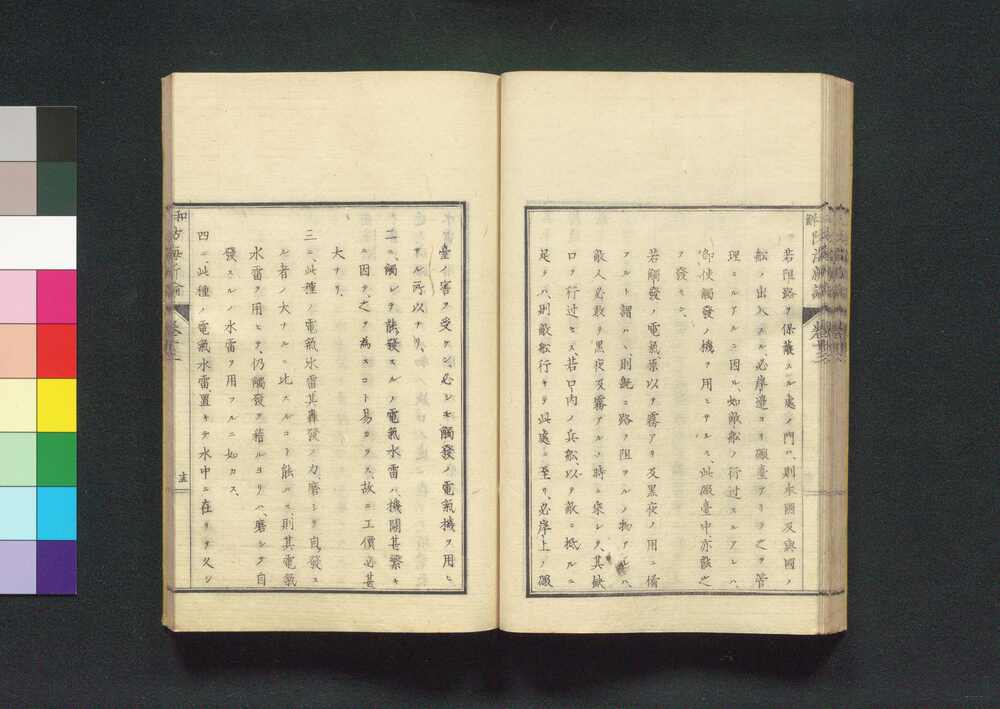 若阻路ヲ保護スル處ノ門ハ、則本國及與國ノ
船ノ出入スル、必岸邊ヨリ礮臺アリテ之ヲ管
理スルアルニ因ル、如敵船ノ行過スルアレハ、
即使觸發ノ機ヲ用ヒサルモ、此礮臺中亦能之
ヲ發セン、
若觸發ノ電氣原以テ霧アリ及黒夜ノ用ニ備
フルト謂ハヽ、則既ニ路ヲ阻ツルノ物アルハ、
敵人必敢テ黒夜及霧アルノ時ニ乗シテ、其缺
口ヲ行過セス、若口内ノ兵船、以テ敵ニ抵ルニ
足ラハ、則敵船行キテ此處ニ至リ、必岸上ノ礮
臺ノ害ヲ受ケン、必シモ觸發ノ電氣機ヲ用ヒ
サル所以ナリ、
二ニ、觸レテ能發スルノ電氣水雷ハ、機關甚繁キ
ニ因テ、之ヲ為スコト易カラス、故ニ工價必甚
大ナリ、
三ニ、此種ノ電氣水雷其轟發ノ力磨シテ自發ス
ル者ノ大ナルニ比スルコト能ハス、則其電氣
水雷ヲ用ヒテ、仍觸發ヲ藉ルヨリハ、磨シテ自
發スルノ水雷ヲ用フルニ如カス、
四ニ、此種ノ電氣水雷置キテ水中ニ在リテ久シ